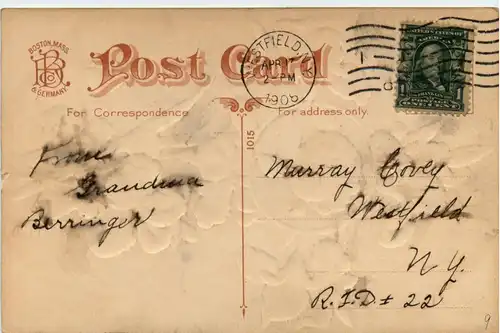 BOSTON, MASS.
& GERMANY
Post Card
WESTFIELD, N.Y.
APR 17
2 - PM
1908
For Correspondence
For address only.
1015
From
Grandma
Berringer
Murray Covey
Westfield
N.Y.
R.F.D # 22
9